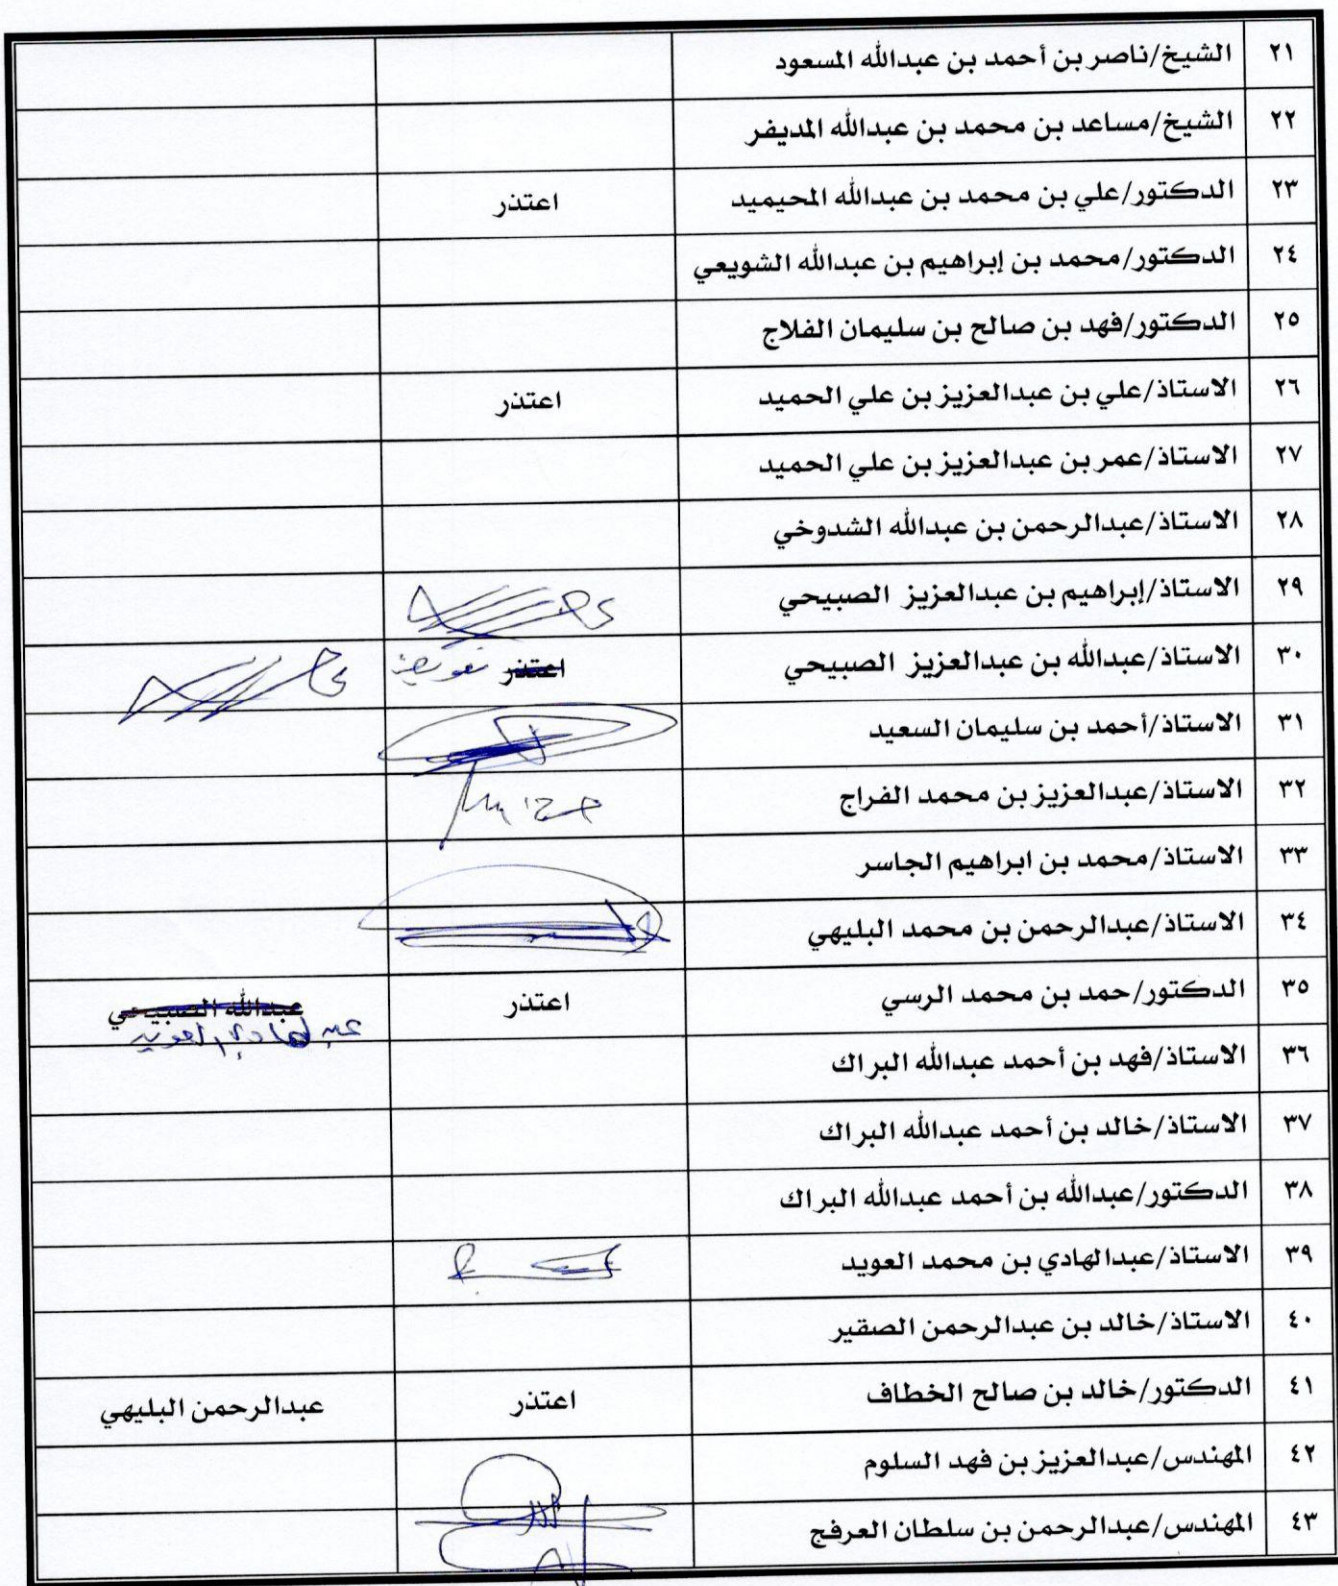 ٢١ الشيخ/ناصر بن أحمد بن عبدالله المسعود
٢٢ الشيخ/مساعد بن محمد بن عبدالله المديفر
٢٣ الدكتور/علي بن محمد بن عبدالله المحيميد اعتذر
٢٤ الدكتور/محمد بن إبراهيم بن عبدالله الشويعي
٢٥ الدكتور/فهد بن صالح بن سليمان الفلاج
٢٦ الاستاذ/علي بن عبدالعزيز بن علي الحميد اعتذر
٢٧ الاستاذ/عمر بن عبدالعزيز بن علي الحميد
٢٨ الاستاذ/عبدالرحمن بن عبدالله الشدوخي
٢٩ الاستاذ/إبراهيم بن عبدالعزيز الصبيحي
٣٠ الاستاذ/عبدالله بن عبدالعزيز الصبيحي اعتذر
٣١ الاستاذ/أحمد بن سليمان السعيد
٣٢ الاستاذ/عبدالعزيز بن محمد الفراج
٣٣ الاستاذ/محمد بن ابراهيم الجاسر
٣٤ الاستاذ/عبدالرحمن بن محمد البليهي
٣٥ الدكتور/حمد بن محمد الرسي اعتذر عبدالله الصبيحي
عبدالهادي العويد
٣٦ الاستاذ/فهد بن أحمد عبدالله البراك
٣٧ الاستاذ/خالد بن أحمد عبدالله البراك
٣٨ الدكتور/عبدالله بن أحمد عبدالله البراك
٣٩ الاستاذ/عبدالهادي بن محمد العويد
٤٠ الاستاذ/خالد بن عبدالرحمن الصقير
٤١ الدكتور/خالد بن صالح الخطاف اعتذر عبدالرحمن البليهي
٤٢ المهندس/عبدالعزيز بن فهد السلوم
٤٣ المهندس/عبدالرحمن بن سلطان العرفج